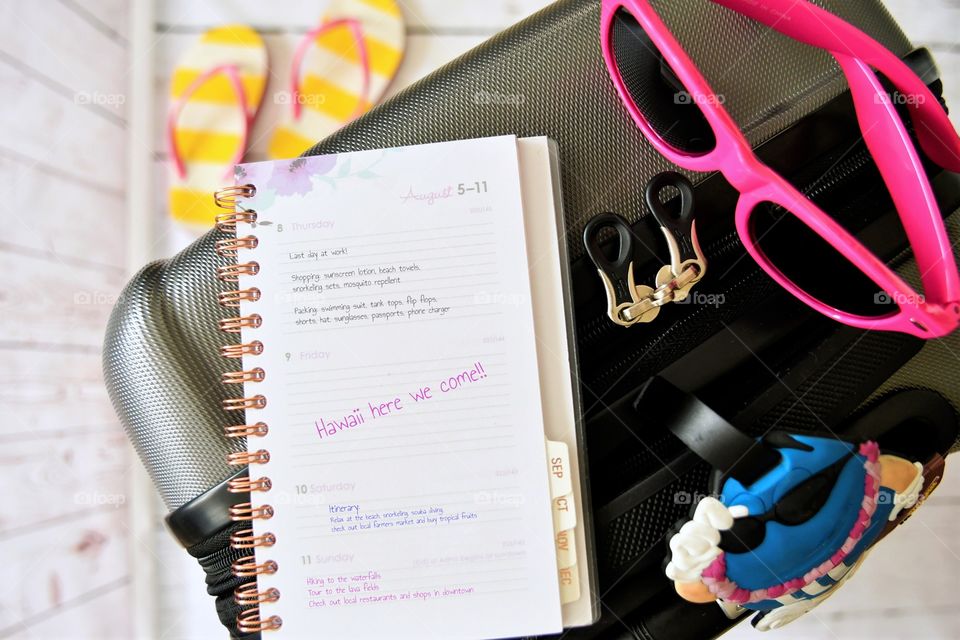 August 5–11
8 Thursday
Last day at work!
Shopping: sunscreen lotion, beach towels,
snorkeling sets, mosquito repellent
Packing: swimming suit, tank tops, flip flops,
shorts, hat, sunglasses, passports, phone charger
9 Friday
Hawaii here we come!!
10 Saturday
Itinerary:
Relax at the beach, snorkeling, scuba diving
check out local farmers market and buy tropical fruits
11 Sunday
Hiking to the waterfalls
Tour to the lava fields
Check out local restaurants and shops in downtown
SEP
OCT
NOV
DEC